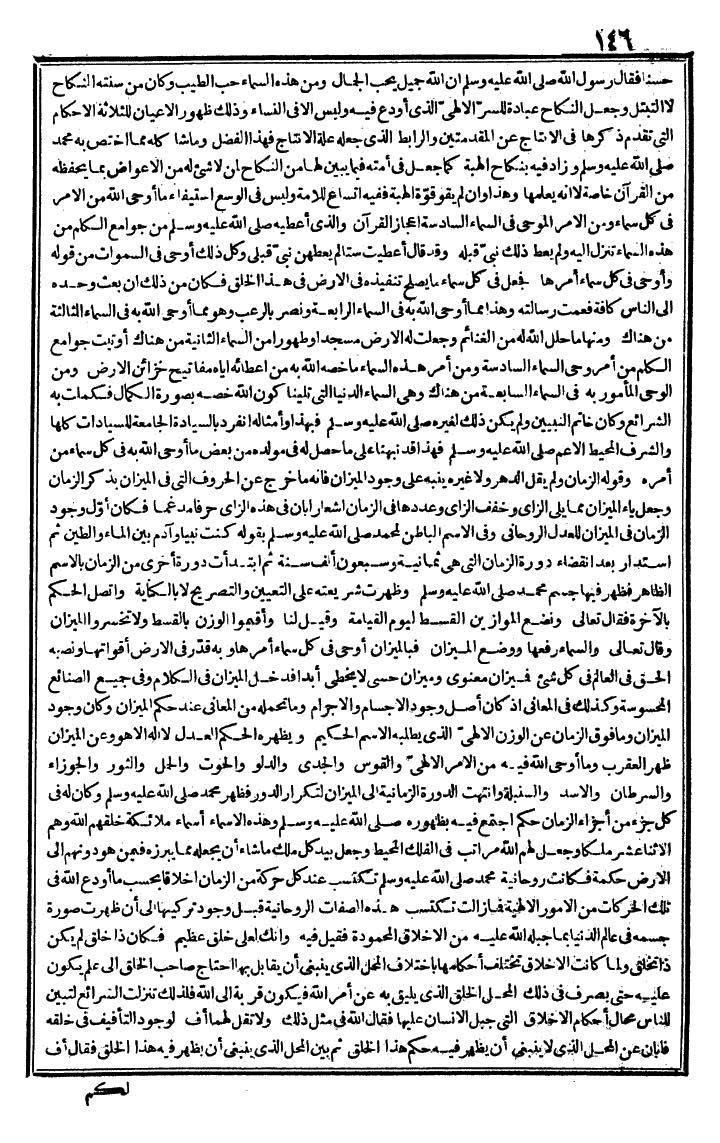 ١٤٦
حسنا فقال رسول الله صلى الله عليه وسلم ان الله جميل يحب الجمال ومن هذه السماء حب الطيب وكان من سنته النكاح
لا التبتل وجعل النكاح عبادة للسر الالهى الذى أودع فيه وليس الا فى النساء وذلك ظهور الاعيان للثلاثة الاحكام
التى تقدم ذكرها فى الانتاج عن المقدمتين والرابط الذى جعله علة الانتاج فهذا الفضل وما شا كله مما اختص به محمد
صلى الله عليه وسلم وزاد فيه بنكاح الهبة كما جعل فى أمته فيما يبين لها من النكاح لمن لا شئ له من الاعواض بما يحفظه
من القرآن خاصة لا انه يعلمها وهذا وان لم يقو قوة الهبة ففيه اتساع للامة وليس فى الوسع استيفاء ما أوحى الله من الامر
فى كل سماء ومن الامر الموحى فى السماء السادسة اعجاز القرآن والذى أعطيه صلى الله عليه وسلم من جوامع الكلم من
هذه السماء تنزل اليه ولم يعط ذلك نبىّ قبله وقد قال أعطيت ستا لم يعطهن نبىّ قبلى وكل ذلك أوحى فى السموات من قوله
وأوحى فى كل سماء أمرها فجعل فى كل سماء ما يصلح تنفيذه فى الارض فى هذا الخلق فكان من ذلك ان بعث وحده
الى الناس كافة فعمت رسالته وهذا مما أوحى الله به فى السماء الرابعة ونصر بالرعب وهو مما أوحى الله به فى السماء الثالثة
من هناك ومنها ما حلل الله له من الغنائم وجعلت له الارض مسجدا وطهورا من السماء الثانية من هناك أوتيت جوامع
الكلم من أمر وحى السماء السادسة ومن أمر هذه السماء ما خصه الله به من اعطائه اياه مفاتيح خزائن الارض ومن
الوحى المأمور به فى السماء السابعة من هناك وهى السماء الدنيا التى تلينا كون الله خصه بصورة الكمال فكملت به
الشرائع وكان خاتم النبيين ولم يكن ذلك لغيره صلى الله عليه وسلم فبهذا وأمثاله انفرد بالسيادة الجامعة للسيادات كلها
والشرف المحيط الاعم صلى الله عليه وسلم فهذا قد نبهنا على ما حصل له فى مولده من بعض ما أوحى الله به فى كل سماء من
أمره وقوله الزمان ولم يقل الدهر ولا غيره ينبه على وجود الميزان فانه ما خرج عن الحروف التى فى الميزان بذكر الزمان
وجعل ياء الميزان مما يلى الزاى وخفف الزاى وعددها فى الزمان اشعارا بان فى هذه الزاى حرفا مدغما فكان أوّل وجود
الزمان فى الميزان للعدل الروحانى وفى الاسم الباطن لمحمد صلى الله عليه وسلم بقوله كنت نبيا وآدم بين الماء والطين ثم
استدار بعد انقضاء دورة الزمان التى هى ثمانية وسبعون ألف سنة ثم ابتدأت دورة أخرى من الزمان بالاسم
الظاهر فظهر فيها جسم محمد صلى الله عليه وسلم وظهرت شريعته على التعيين والتصريح لا بالكناية واتصل الحكم
بالآخرة فقال تعالى ونضع الموازين القسط ليوم القيامة وقيل لنا وأقيموا الوزن بالقسط ولا تخسروا الميزان
وقال تعالى والسماء رفعها ووضع الميزان فبالميزان أوحى فى كل سماء أمرها وبه قدّر فى الارض أقواتها ونصبه
الحق فى العالم فى كل شئ فميزان معنوى وميزان حسى لا يخطئ أبدا فدخل الميزان فى الكلام وفى جميع الصنائع
المحسوسة وكذلك فى المعانى اذ كان أصل وجود الاجسام والاجرام وما تحمله من المعانى عند حكم الميزان وكان وجود
الميزان وما فوق الزمان عن الوزن الالهىّ الذى يطلبه الاسم الحكيم ويظهره الحكم العدل لا اله الا هو وعن الميزان
ظهر العقرب وما أوحى الله فيه من الامر الالهىّ والقوس والجدى والدلو والحوت والحمل والثور والجوزاء
والسرطان والاسد والسنبلة وانتهت الدورة الزمانية الى الميزان لتكرار الدور فظهر محمد صلى الله عليه وسلم وكان له فى
كل جزء من أجزاء الزمان حكم اجتمع فيه بظهوره صلى الله عليه وسلم وهذه الاسماء أسماء ملائكة خلقهم الله وهم
الاثنا عشر ملكا وجعل لهم الله مراتب فى الفلك المحيط وجعل بيد كل ملك ما شاء أن يجعله مما يبرزه فيمن هو دونهم الى
الارض حكمة فكانت روحانية محمد صلى الله عليه وسلم تكتسب عند كل حركة من الزمان اخلاقا بحسب ما أودع الله فى
تلك الحركات من الامور الالهية فما زالت تكتسب هذه الصفات الروحانية قبل وجود تركيبها الى أن ظهرت صورة
جسمه فى عالم الدنيا بما جبله الله عليه من الاخلاق المحمودة فقيل فيه وانك لعلى خلق عظيم فكان ذا خلق لم يكن
ذا تخلق ولما كانت الاخلاق تختلف أحكامها باختلاف المحل الذى ينبغى أن يقابل بها احتاج صاحب الخلق الى علم يكون
عليه حتى يصرف فى ذلك المحل الخلق الذى يليق به عن أمر الله فيكون قربة الى الله فلذلك تنزلت الشرائع لتبين
للناس محال أحكام الاخلاق التى جبل الانسان عليها فقال الله فى مثل ذلك ولا تقل لهما أف لوجود التأفيف فى خلقه
فابان عن المحل الذى لا ينبغى أن يظهر فيه حكم هذا الخلق ثم بين المحل الذى ينبغى أن يظهر فيه هذا الخلق فقال أف
لكم